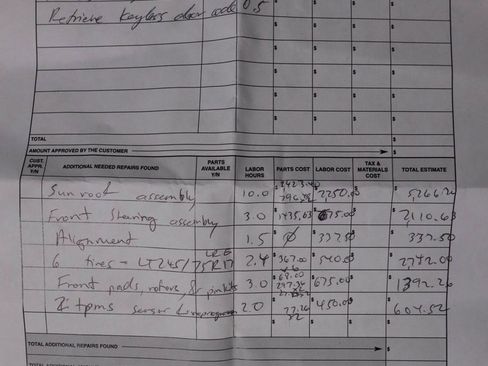 Retrieve Keyless door code 0.5
$ $ $ $
$ $ $ $
$ $ $ $
$ $ $ $
$ $ $ $
TOTAL $
AMOUNT APPROVED BY THE CUSTOMER $
CUST. APPR. Y/N ADDITIONAL NEEDED REPAIRS FOUND PARTS AVAILABLE Y/N LABOR HOURS PARTS COST LABOR COST TAX & MATERIALS COST TOTAL ESTIMATE
Sunroof assembly 10.0 $ 2250.00 $
Front Steering assembly 3.0 $ 1435.63 $ 675.00 $ $ 2110.63
Alignment 1.5 $ Ø $ 337.50 $ $ 337.50
6 tires - LT245/75R17 LRE 2.4 $ 367.00 x6 $ 540.00 $ $ 2742.00
Front pads, rotors, & 3.0 $ $ 675.00 $ $ 1392.26
2 tpms sensor 2.0 $ 77.26 x2 $ 450.00 $ $ 604.52
$ $ $ $
TOTAL ADDITIONAL REPAIRS FOUND $